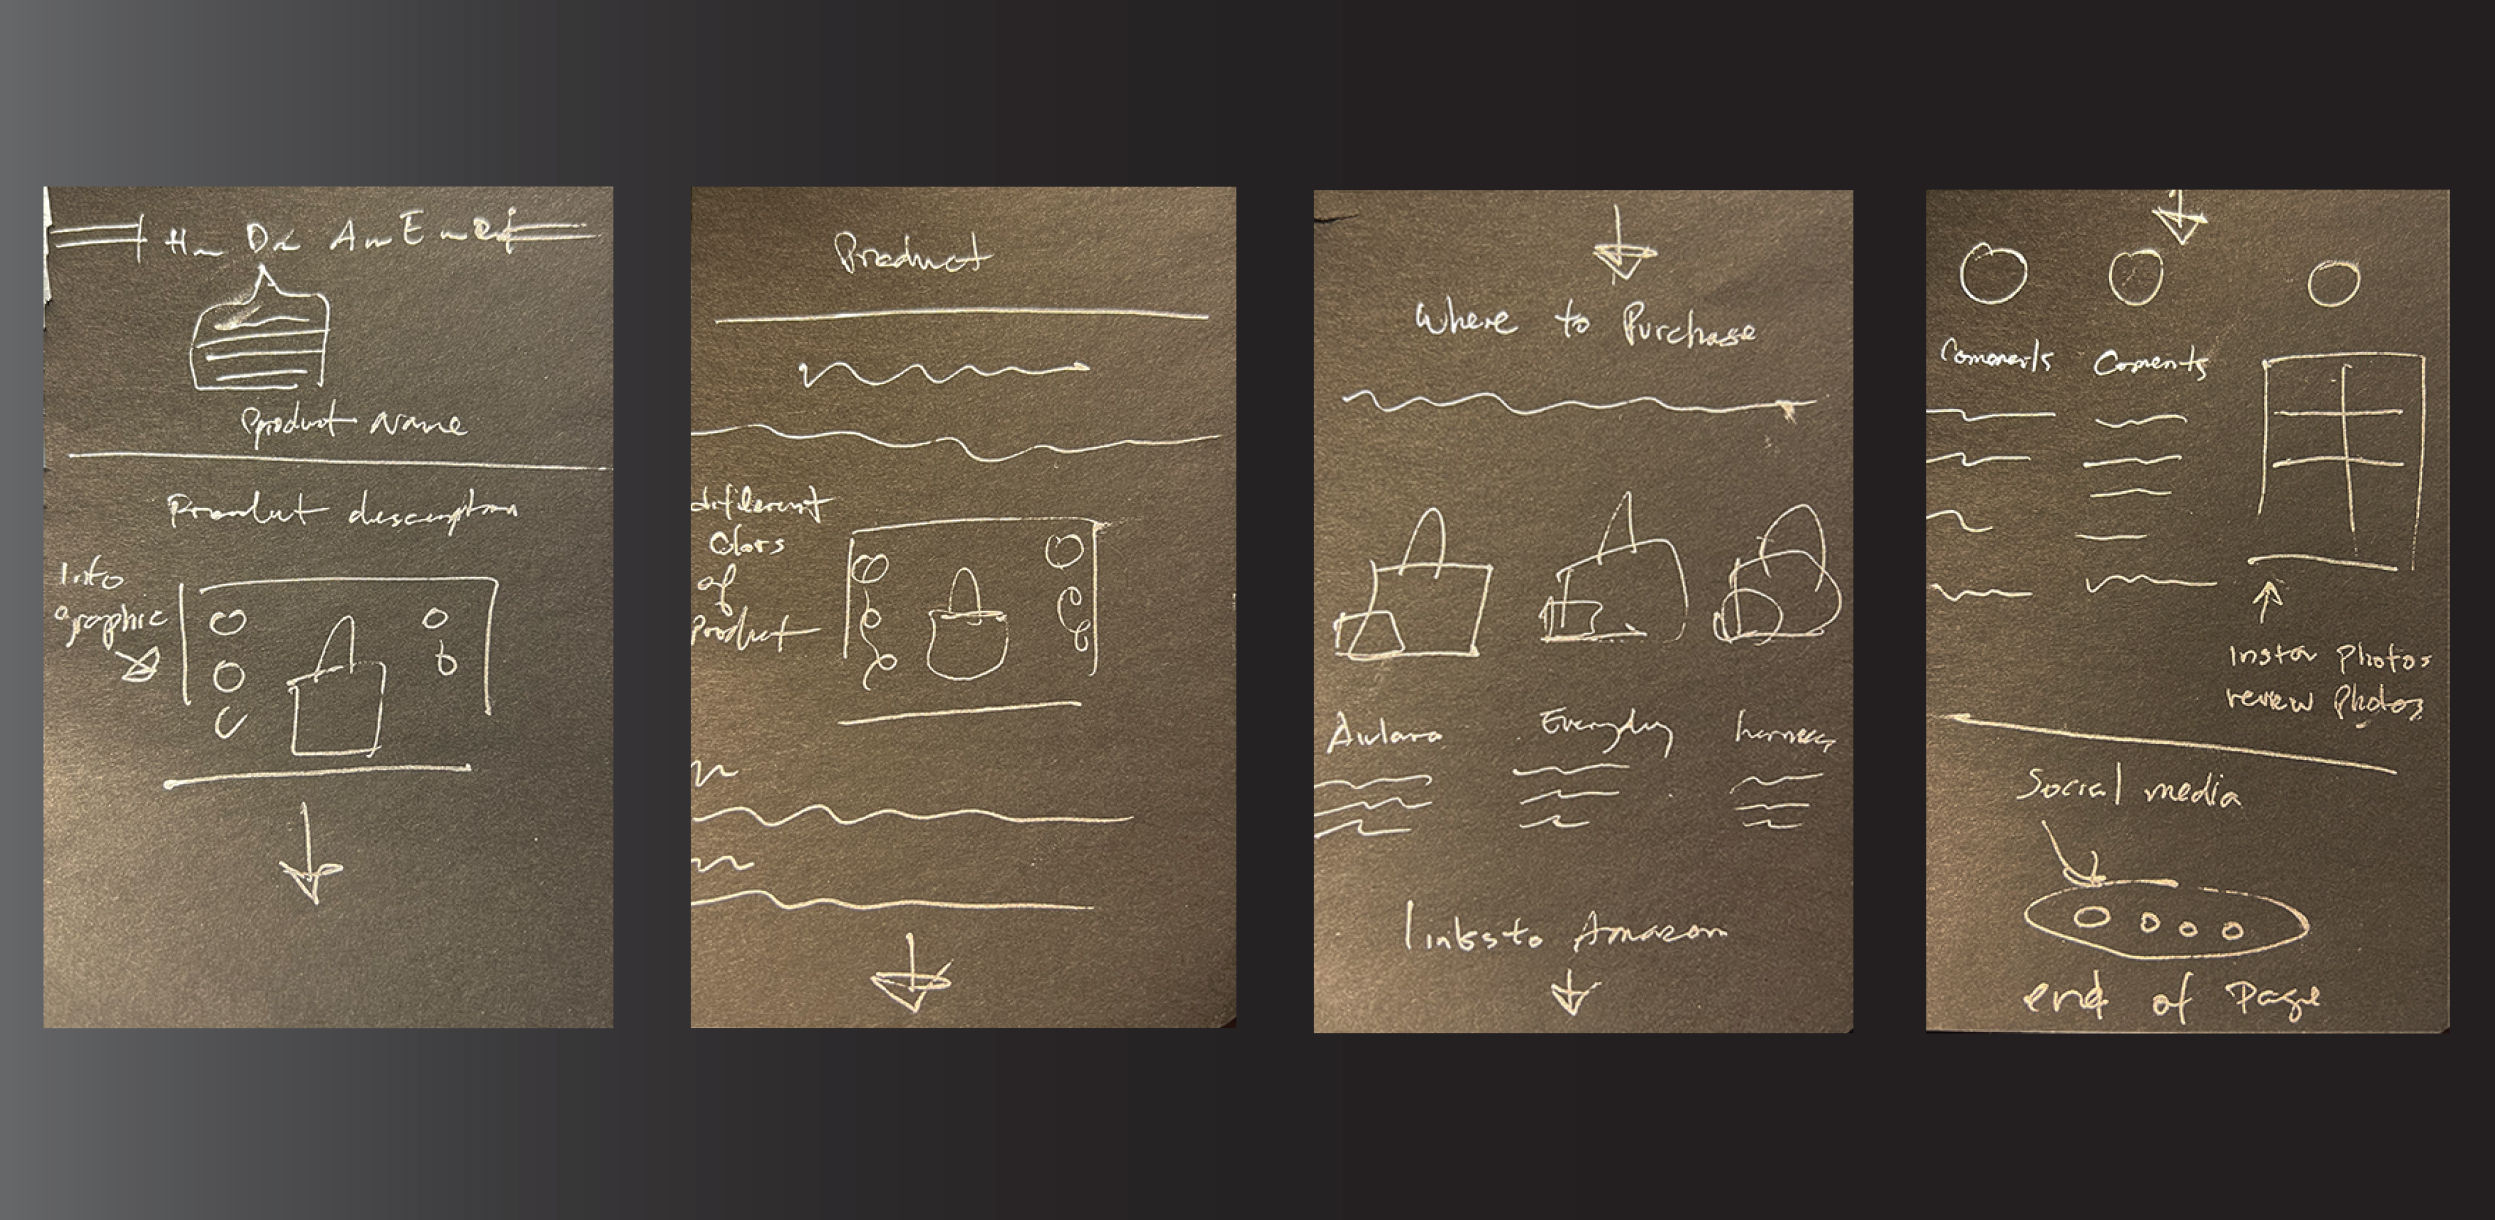 Product Name
Product description
Info
graphic
Product
different
Colors
of
Product
Where to Purchase
Everyday
harness
links to Amazon
Comments
Coments
Insta Photos
review Photos
Social media
end of Page